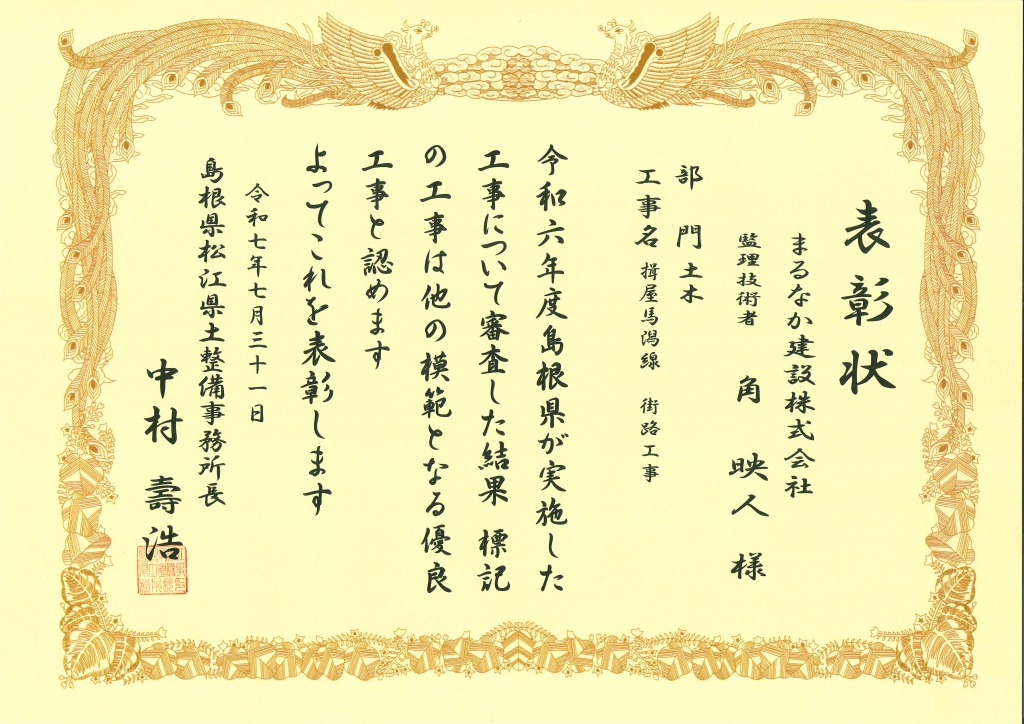 表彰状
まるなか建設株式会社
監理技術者 角 映人 様
部門 土木
工事名 揖屋馬潟線 街路工事
令和六年度島根県が実施した
工事について審査した結果 標記
の工事は他の模範となる優良
工事と認めます
よってこれを表彰します
令和七年七月三十一日
島根県松江県土整備事務所長
中村 壽浩